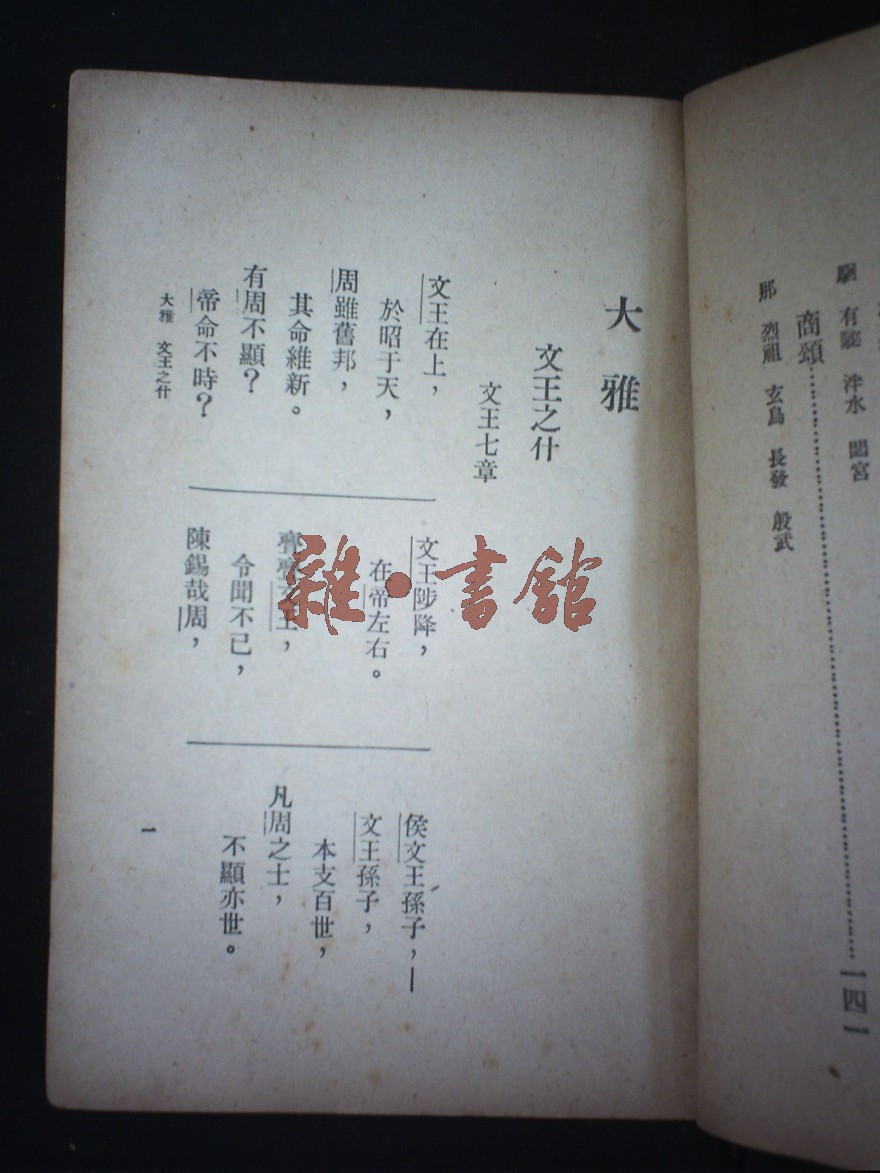 駉 有駜 泮水 閟宮
商頌……………………一四一
那 烈祖 玄鳥 長發 殷武
大雅
文王之什
文王七章
文王在上，
於昭于天，
周雖舊邦，
其命維新。
有周不顯？
帝命不時？
文王陟降，
在帝左右。
亹亹文王，
令聞不已，
陳錫哉周，
侯文王孫子，—
文王孫子，
本支百世，
凡周之士，
不顯亦世。
大雅 文王之什
一
雜•書館